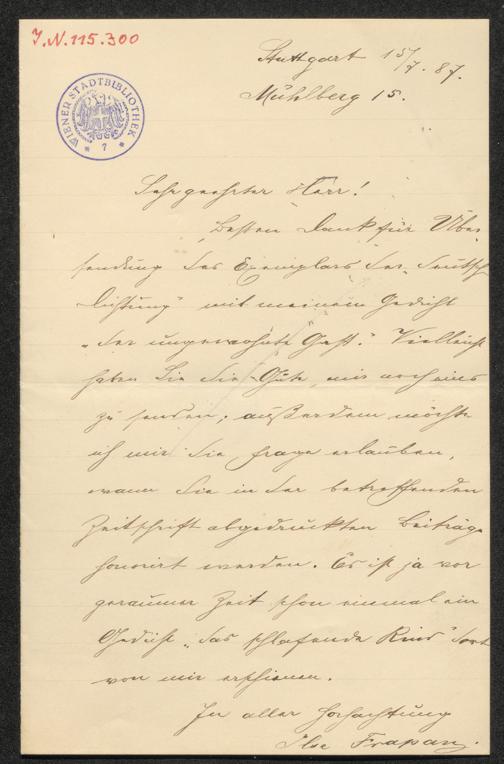 J.N. 115.300
WIENER STADTBIBLIOTHEK
7
Stuttgart 15/7. 87.
Mühlberg 15.
Sehr geehrter Herr!
Besten Dank für Über-
sendung des Exemplars der „Deutsch
Dichtung" mit meinem Gedicht
„Der ungewohnte Gast." Vielleicht
haben Sie die Güte, mir noch eins
zu senden; außerdem möchte
ich mir die Frage erlauben,
wann die in der betreffenden
Zeitschrift abgedruckten Beiträge
honorirt werden. Es ist ja vor
geraumer Zeit schon einmal ein
Gedicht „Das schlafende Kind" dort
von mir erschienen.
In aller Hochachtung
Ilse Frapan.